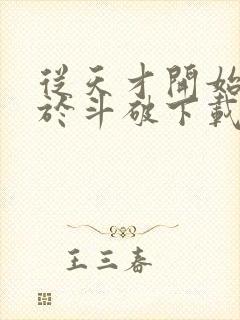 從天才開始
於斗破下載
王三春